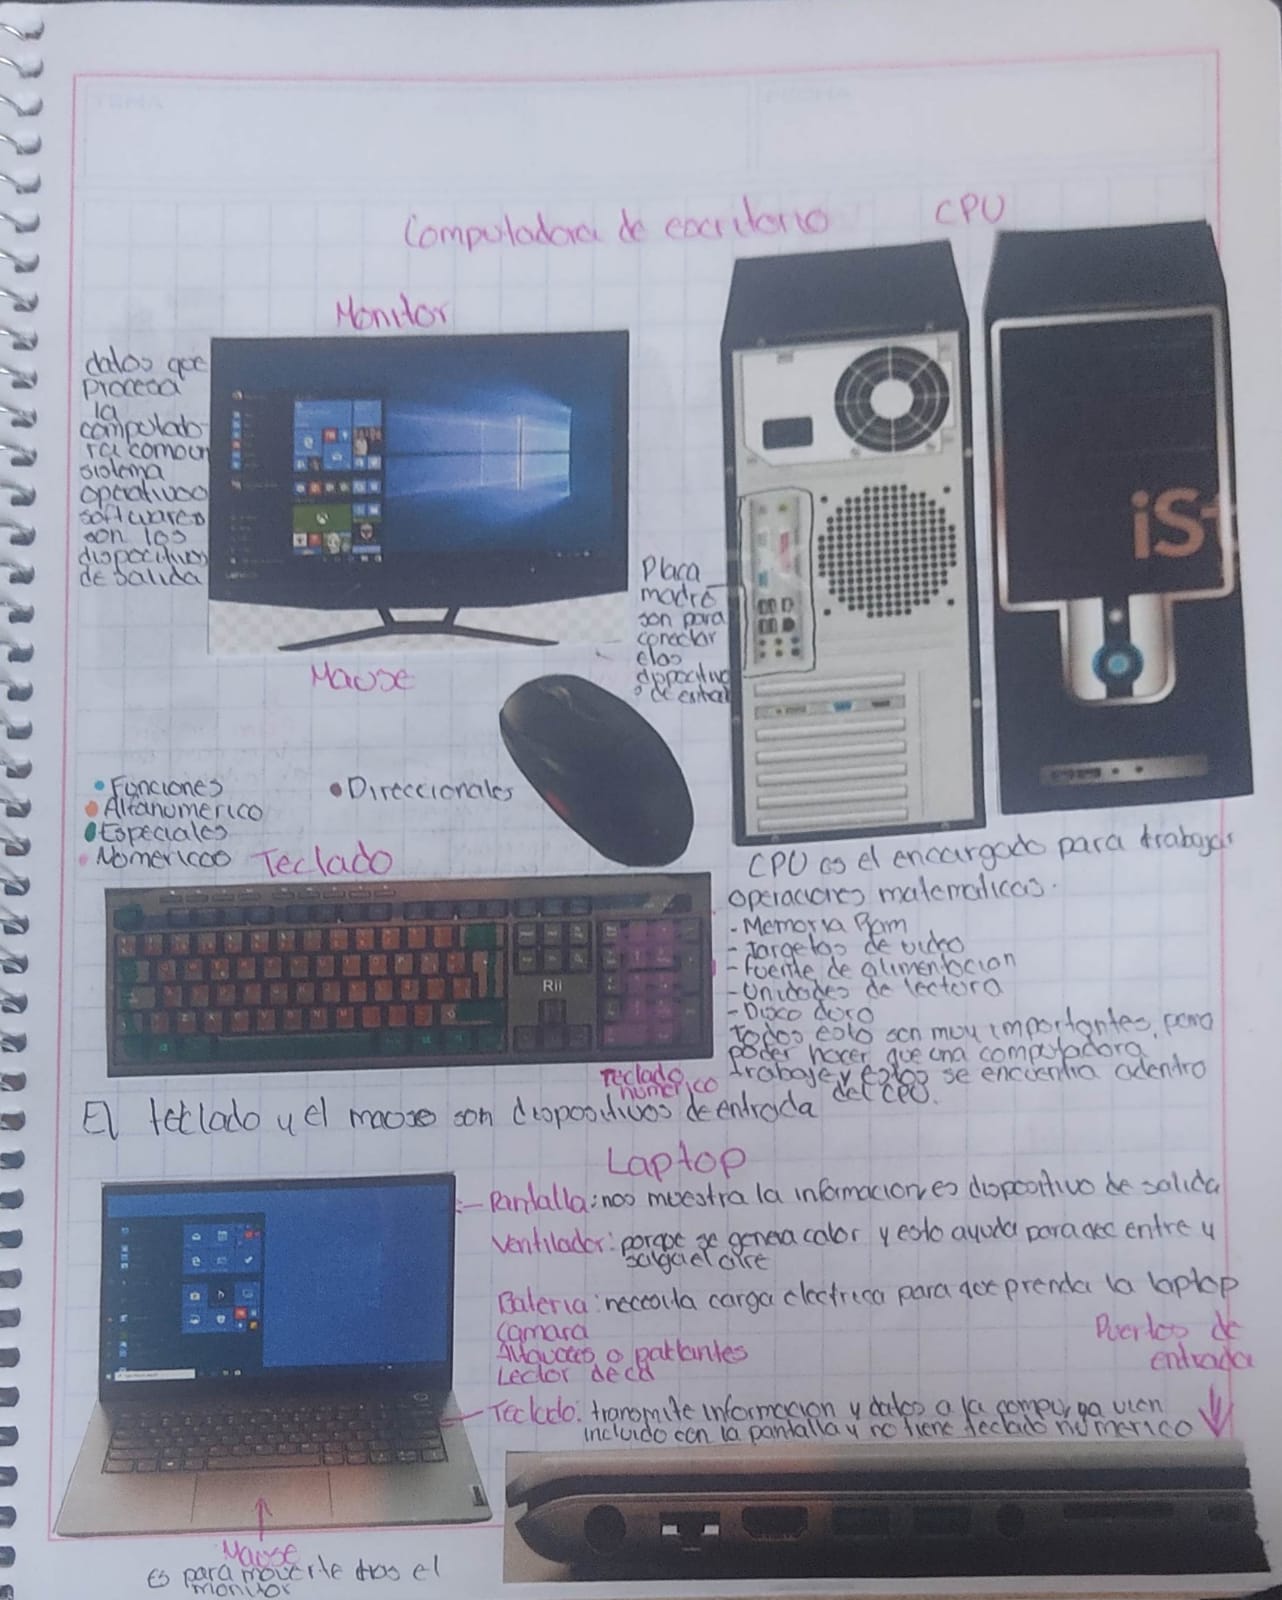 Computadora de escritorio
CPU
Monitor
datos que
procesa
la
computado
ra como un
sistema
operativoo
softwares
son los
dispocitivos
de salida
iSt
Placa
madre
son para
conectar
elos
dispocitivo
s de entrad
Mause
Funciones
Alfanumerico
Especiales
Numericos
Direccionales
Teclado
Rii
Teclado
numerico
CPU es el encargado para trabajar
operaciones matematicas.
- Memoria Ram
- Targetas de video
- Fuente de alimentacion
- Unidades de lectora
- Disco duro
Todos esto son muy importantes, para
poder hacer que una computadora
trabaje y estos se encuentra adentro
del CPU.
El teclado y el mause son dispositivos de entrada
Laptop
Pantalla: nos muestra la informacion es dispositivo de salida
Ventilador: porque se genera calor y esto ayuda para que entre y
salga el aire
Bateria: necesita carga electrica para que prenda la laptop
Camara
Altavoces o parlantes
Lector de cd
Puertos de
entrada
Teclado: transmite informacion y datos a la compu, ya vien
incluido con la pantalla y no tiene teclado numerico
Mause
es para moverte tras el
monitor